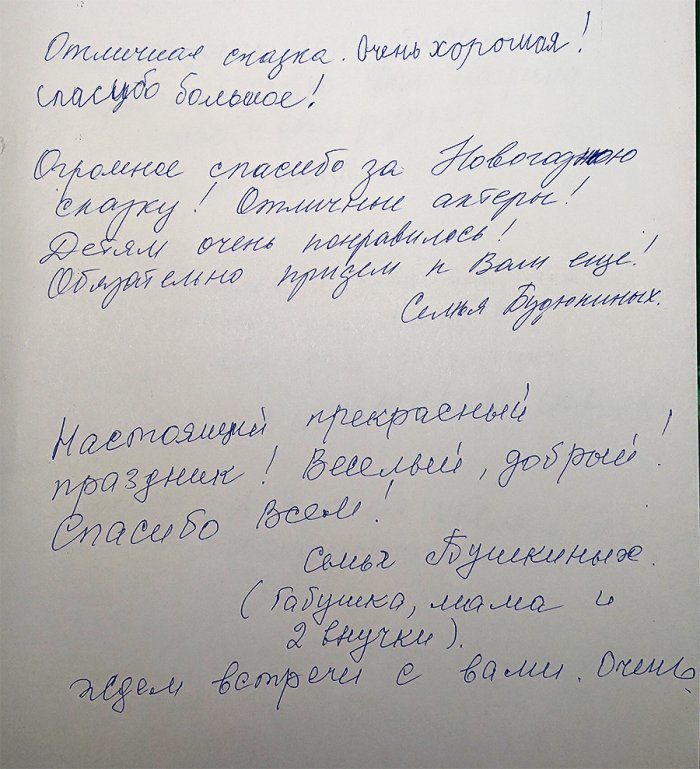 Отличная сказка. Очень хорошая!
Спасибо большое!
Огромное спасибо за Новогоднюю
сказку! Отличные актеры!
Детям очень понравилось!
Обязательно придем к Вам еще!
Семья Будюкиных.
Настоящий прекрасный
праздник! Веселый, добрый!
Спасибо Всем!
Семья Бушкиных.
(бабушка, мама и
2 внучки).
Ждем встречи с вами. Очень.